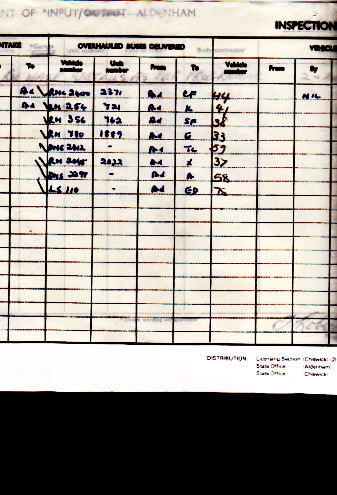 NT OF *INPUT/OUTPUT ALDENHAM
INSPECTION
NTAKE OVERHAULED BUSES DELIVERED VEHICL
To Vehicle number Unit number From To Vehicle number From By
Ad RML 2600 2371 Ad RF 44 NIL
Ad RM 254 721 Ad K 41
RM 356 762 Ad SF 38
RM 780 1889 Ad G 33
DMS 2612 - Ad TL 59
RM 2045 2022 Ad X 37
DMS 2297 - Ad A 58
LS 110 - Ad ED 75
DISTRIBUTION Licensing Section (Chiswick) (2)
State Office (Aldenham)
State Office (Chiswick)